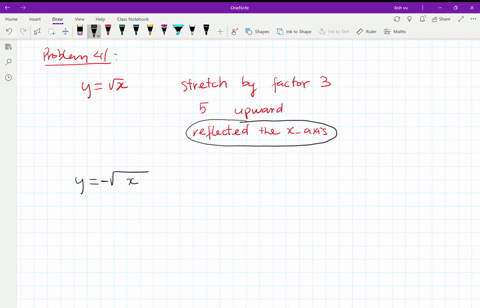 OneNote
linh vu
File Home Insert Draw View Help Class Notebook
Shapes Ink to Shape Ink to Text Ruler Math Full Page View
Problem 41:
y = √x stretch by factor 3
5 upward
reflected the x-axis
y = -√x